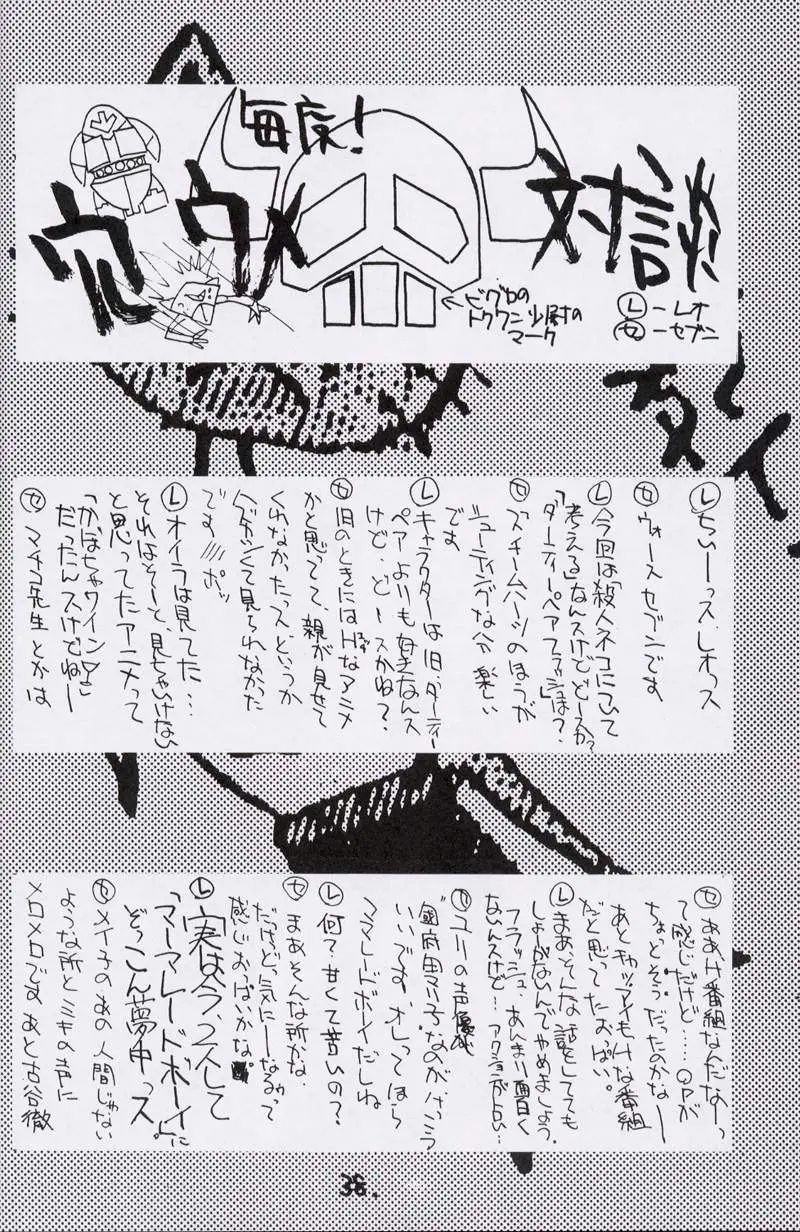 毎度!
穴ウメ対談
←ビグロの
トクワン少尉の
マーク
Ⓛーレオ
㋝ーセブン
Ⓛちぃーっス、レオっス
㋝ウォースセブンです
Ⓛ今回は「殺人ネコについて
考える」なんスけどどースか?
「ダーティーペアフラッシュ」は?
㋝ズチームハーツのほうが
シューティングな分楽しい
です
Ⓛキャラクターは旧、ダーティー
ペアよりも好きなんス
けど、どースかね?
㋝旧のときにはHなアニメ
かと思ってて、親が見せて
くれなかったっス、というか
ハズかしくて見られなかった
です///ポッ
Ⓛオイラは見てた…
それはそーと、見ちゃいけない
と思ってたアニメって
「かぼちゃワイン♡」
だったんスけどねー
㋝マチコ先生とかは
㋝ああH番組なんだなーっ
て感じだけど…。OPが
ちょっとそうだったのかなー
あとキャッツアイもHな番組
だと思ってたおっぱい。
Ⓛまあ、そんな話をしてても
しょーがないんでやめましょう。
フラッシュ、あんまり面白く
ないんスけど…アクションが白い…
㋝ユリの声優が
"國府田マリ子"なのがけっこう
いいです、オレってほら
ママレードボイだしね
Ⓛ何?甘くて苦いの?
㋝まあそんな所かな、
だけど気にーなるぅって
感じおっぱいかな。
Ⓛ実は今、2人して
「マーマレードボーイ」に
ぞっこん夢中っス
㋝メイ子のあの人間じゃない
ような所とミキの声に
メロメロです あと古谷徹
38.